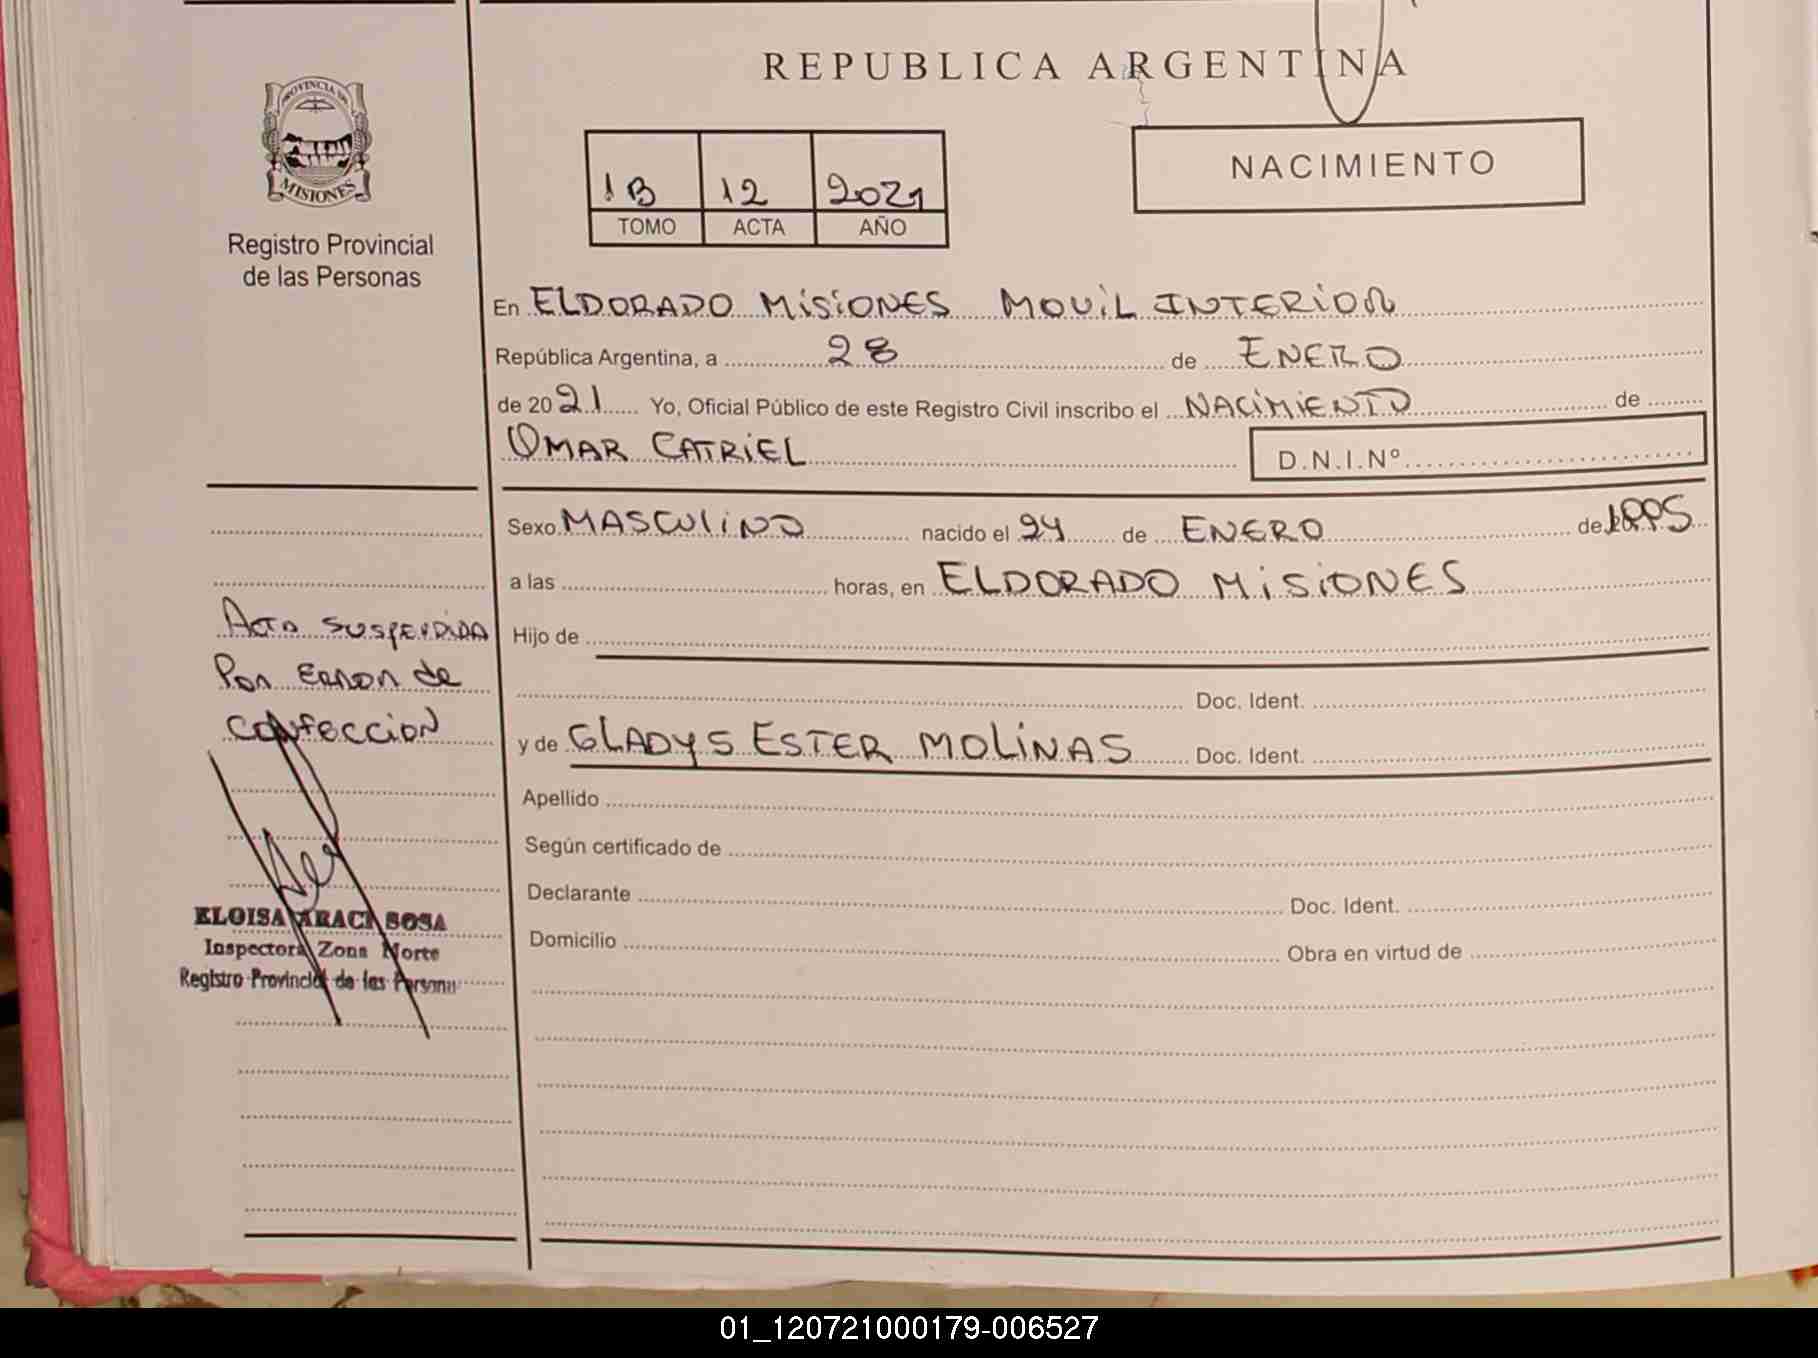 REPUBLICA ARGENTINA
PROVINCIA DE
MISIONES
Registro Provincial
de las Personas
1B 12 2021
TOMO ACTA AÑO
NACIMIENTO
En ELDORADO MISIONES MOVIL INTERIOR
República Argentina, a 28 de ENERO
de 2021 Yo, Oficial Público de este Registro Civil inscribo el NACIMIENTO de
OMAR CATRIEL D.N.I.Nº
Sexo MASCULINO nacido el 24 de ENERO de 1995
a las horas, en ELDORADO MISIONES
Hijo de
Doc. Ident.
y de GLADYS ESTER MOLINAS Doc. Ident.
Apellido
Según certificado de
Declarante Doc. Ident.
Domicilio Obra en virtud de
ACTA SUSPENDIDA
POR ERROR de
CONFECCION
ELOISA ARACI SOSA
Inspectora Zona Norte
Registro Provincial de las Persona
01_120721000179-006527